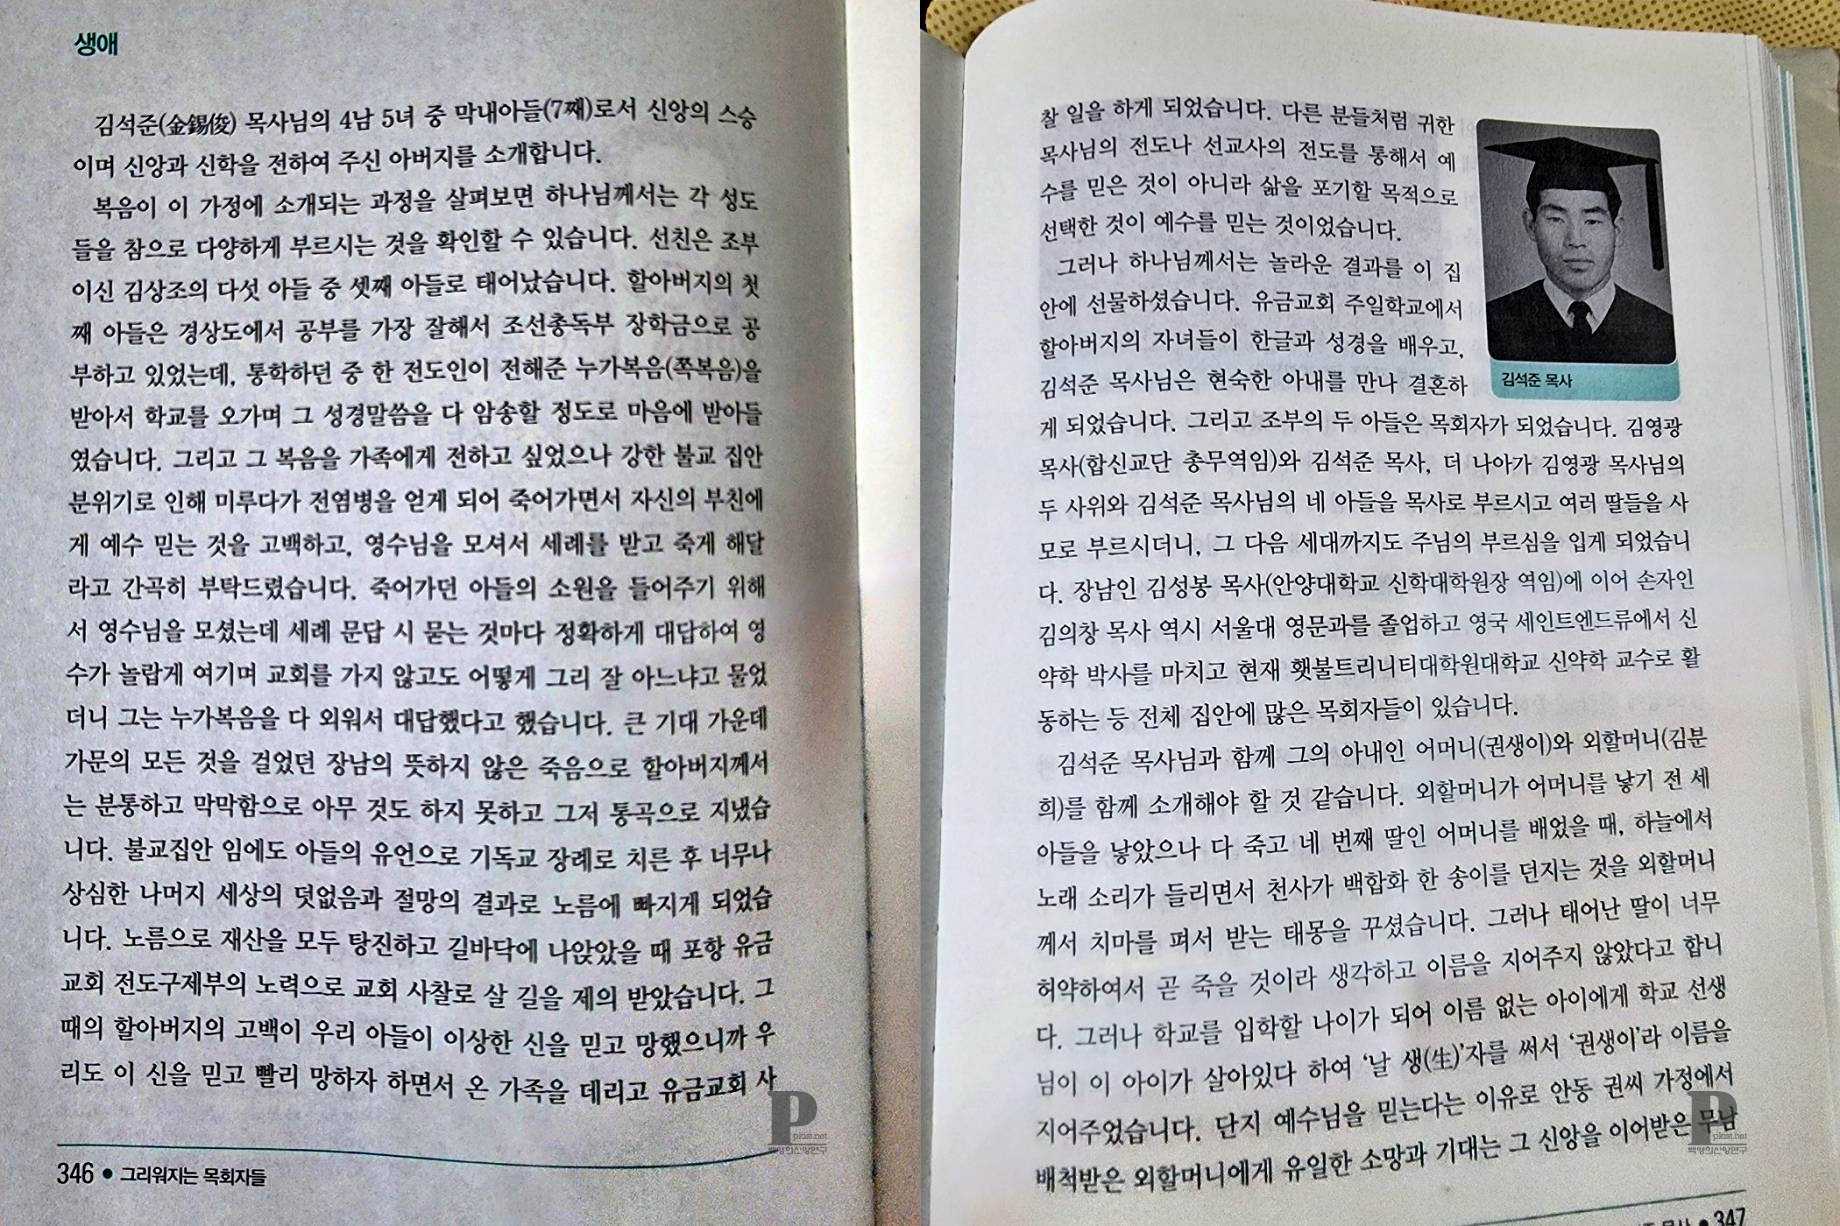 생애
김석준(金錫俊) 목사님의 4남 5녀 중 막내아들(7째)로서 신앙의 스승
이며 신앙과 신학을 전하여 주신 아버지를 소개합니다.
복음이 이 가정에 소개되는 과정을 살펴보면 하나님께서는 각 성도
들을 참으로 다양하게 부르시는 것을 확인할 수 있습니다. 선친은 조부
이신 김상조의 다섯 아들 중 셋째 아들로 태어났습니다. 할아버지의 첫
째 아들은 경상도에서 공부를 가장 잘해서 조선총독부 장학금으로 공
부하고 있었는데, 통학하던 중 한 전도인이 전해준 누가복음(쪽복음)을
받아서 학교를 오가며 그 성경말씀을 다 암송할 정도로 마음에 받아들
였습니다. 그리고 그 복음을 가족에게 전하고 싶었으나 강한 불교 집안
분위기로 인해 미루다가 전염병을 얻게 되어 죽어가면서 자신의 부친에
게 예수 믿는 것을 고백하고, 영수님을 모셔서 세례를 받고 죽게 해달
라고 간곡히 부탁드렸습니다. 죽어가던 아들의 소원을 들어주기 위해
서 영수님을 모셨는데 세례 문답 시 묻는 것마다 정확하게 대답하여 영
수가 놀랍게 여기며 교회를 가지 않고도 어떻게 그리 잘 아느냐고 물었
더니 그는 누가복음을 다 외워서 대답했다고 했습니다. 큰 기대 가운데
가문의 모든 것을 걸었던 장남의 뜻하지 않은 죽음으로 할아버지께서
는 분통하고 막막함으로 아무 것도 하지 못하고 그저 통곡으로 지냈습
니다. 불교집안 임에도 아들의 유언으로 기독교 장례로 치른 후 너무나
상심한 나머지 세상의 덧없음과 절망의 결과로 노름에 빠지게 되었습
니다. 노름으로 재산을 모두 탕진하고 길바닥에 나앉았을 때 포항 유금
교회 전도구제부의 노력으로 교회 사찰로 살 길을 제의 받았습니다. 그
때의 할아버지의 고백이 우리 아들이 이상한 신을 믿고 망했으니까 우
리도 이 신을 믿고 빨리 망하자 하면서 온 가족을 데리고 유금교회 사
346 ● 그리워지는 목회자들
찰 일을 하게 되었습니다. 다른 분들처럼 귀한
목사님의 전도나 선교사의 전도를 통해서 예
수를 믿은 것이 아니라 삶을 포기할 목적으로
선택한 것이 예수를 믿는 것이었습니다.
그러나 하나님께서는 놀라운 결과를 이 집
안에 선물하셨습니다. 유금교회 주일학교에서
할아버지의 자녀들이 한글과 성경을 배우고,
김석준 목사님은 현숙한 아내를 만나 결혼하
게 되었습니다. 그리고 조부의 두 아들은 목회자가 되었습니다. 김영광
목사(합신교단 총무역임)와 김석준 목사, 더 나아가 김영광 목사님의
두 사위와 김석준 목사님의 네 아들을 목사로 부르시고 여러 딸들을 사
모로 부르시더니, 그 다음 세대까지도 주님의 부르심을 입게 되었습니
다. 장남인 김성봉 목사(안양대학교 신학대학원장 역임)에 이어 손자인
김의창 목사 역시 서울대 영문과를 졸업하고 영국 세인트앤드류에서 신
약학 박사를 마치고 현재 횃불트리니티대학원대학교 신약학 교수로 활
동하는 등 전체 집안에 많은 목회자들이 있습니다.
김석준 목사님과 함께 그의 아내인 어머니(권생이)와 외할머니(김분
희)를 함께 소개해야 할 것 같습니다. 외할머니가 어머니를 낳기 전 세
아들을 낳았으나 다 죽고 네 번째 딸인 어머니를 배었을 때, 하늘에서
노래 소리가 들리면서 천사가 백합화 한 송이를 던지는 것을 외할머니
께서 치마를 펴서 받는 태몽을 꾸셨습니다. 그러나 태어난 딸이 너무
허약하여서 곧 죽을 것이라 생각하고 이름을 지어주지 않았다고 합니
다. 그러나 학교를 입학할 나이가 되어 이름 없는 아이에게 학교 선생
님이 이 아이가 살아있다 하여 '날 생(生)'자를 써서 '권생이'라 이름을
지어주었습니다. 단지 예수님을 믿는다는 이유로 안동 권씨 가정에서
배척받은 외할머니에게 유일한 소망과 기대는 그 신앙을 이어받은 무남
김석준 목사
목사 ● 347
P
pkist.net